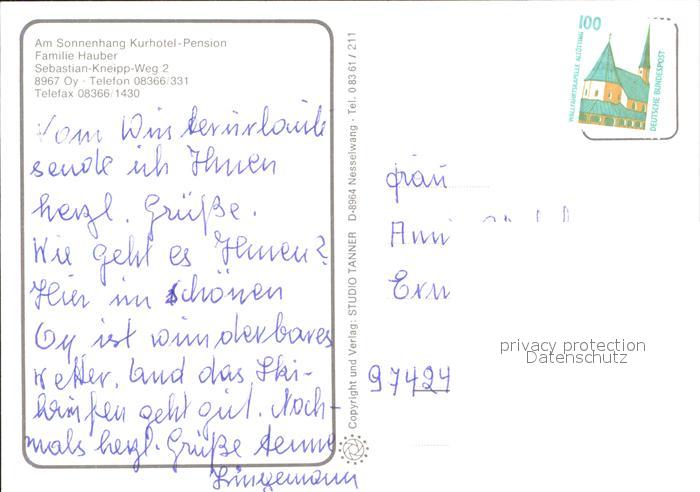 Am Sonnenhang Kurhotel-Pension
Familie Hauber
Sebastian-Kneipp-Weg 2
8967 Oy · Telefon 08366/331
Telefax 08366/1430
Vom Winterurlaub
sende ich Ihnen
herzl. Grüße.
Wie geht es Ihnen?
Hier im schönen
Oy ist wunderbares
Wetter. Und das Ski-
geht gut. Noch-
mals herzl. Grüße Aenne
Lingemann
Copyright und Verlag: STUDIO TANNER D-8964 Nesselwang · Tel. 0 83 61 / 211
100
WALLFAHRTSKAPELLE ALTÖTTING
DEUTSCHE BUNDESPOST
Frau
Ann
Ern
97424
privacy protection
Datenschutz